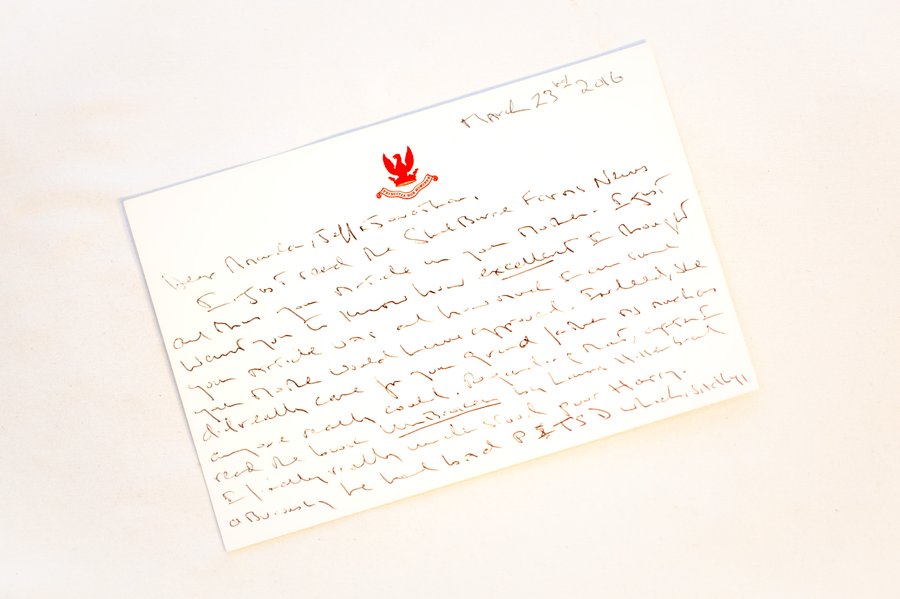 March 23rd 2016
Dear Amanda, Jeff & Jonathan,
I just read the Shelburne Farms News
and then your article on your Mother. I just
want you to know how excellent I thought
your article was and how much I am sure
your Mother would have approved. Indeed, she
did really care for your grand father as much as
anyone really could. Regarding that, after I
read the book Unbroken by Laura Hillenbrand
I finally really understood poor Harry.
Obviously he had bad PTSD which, sadly,